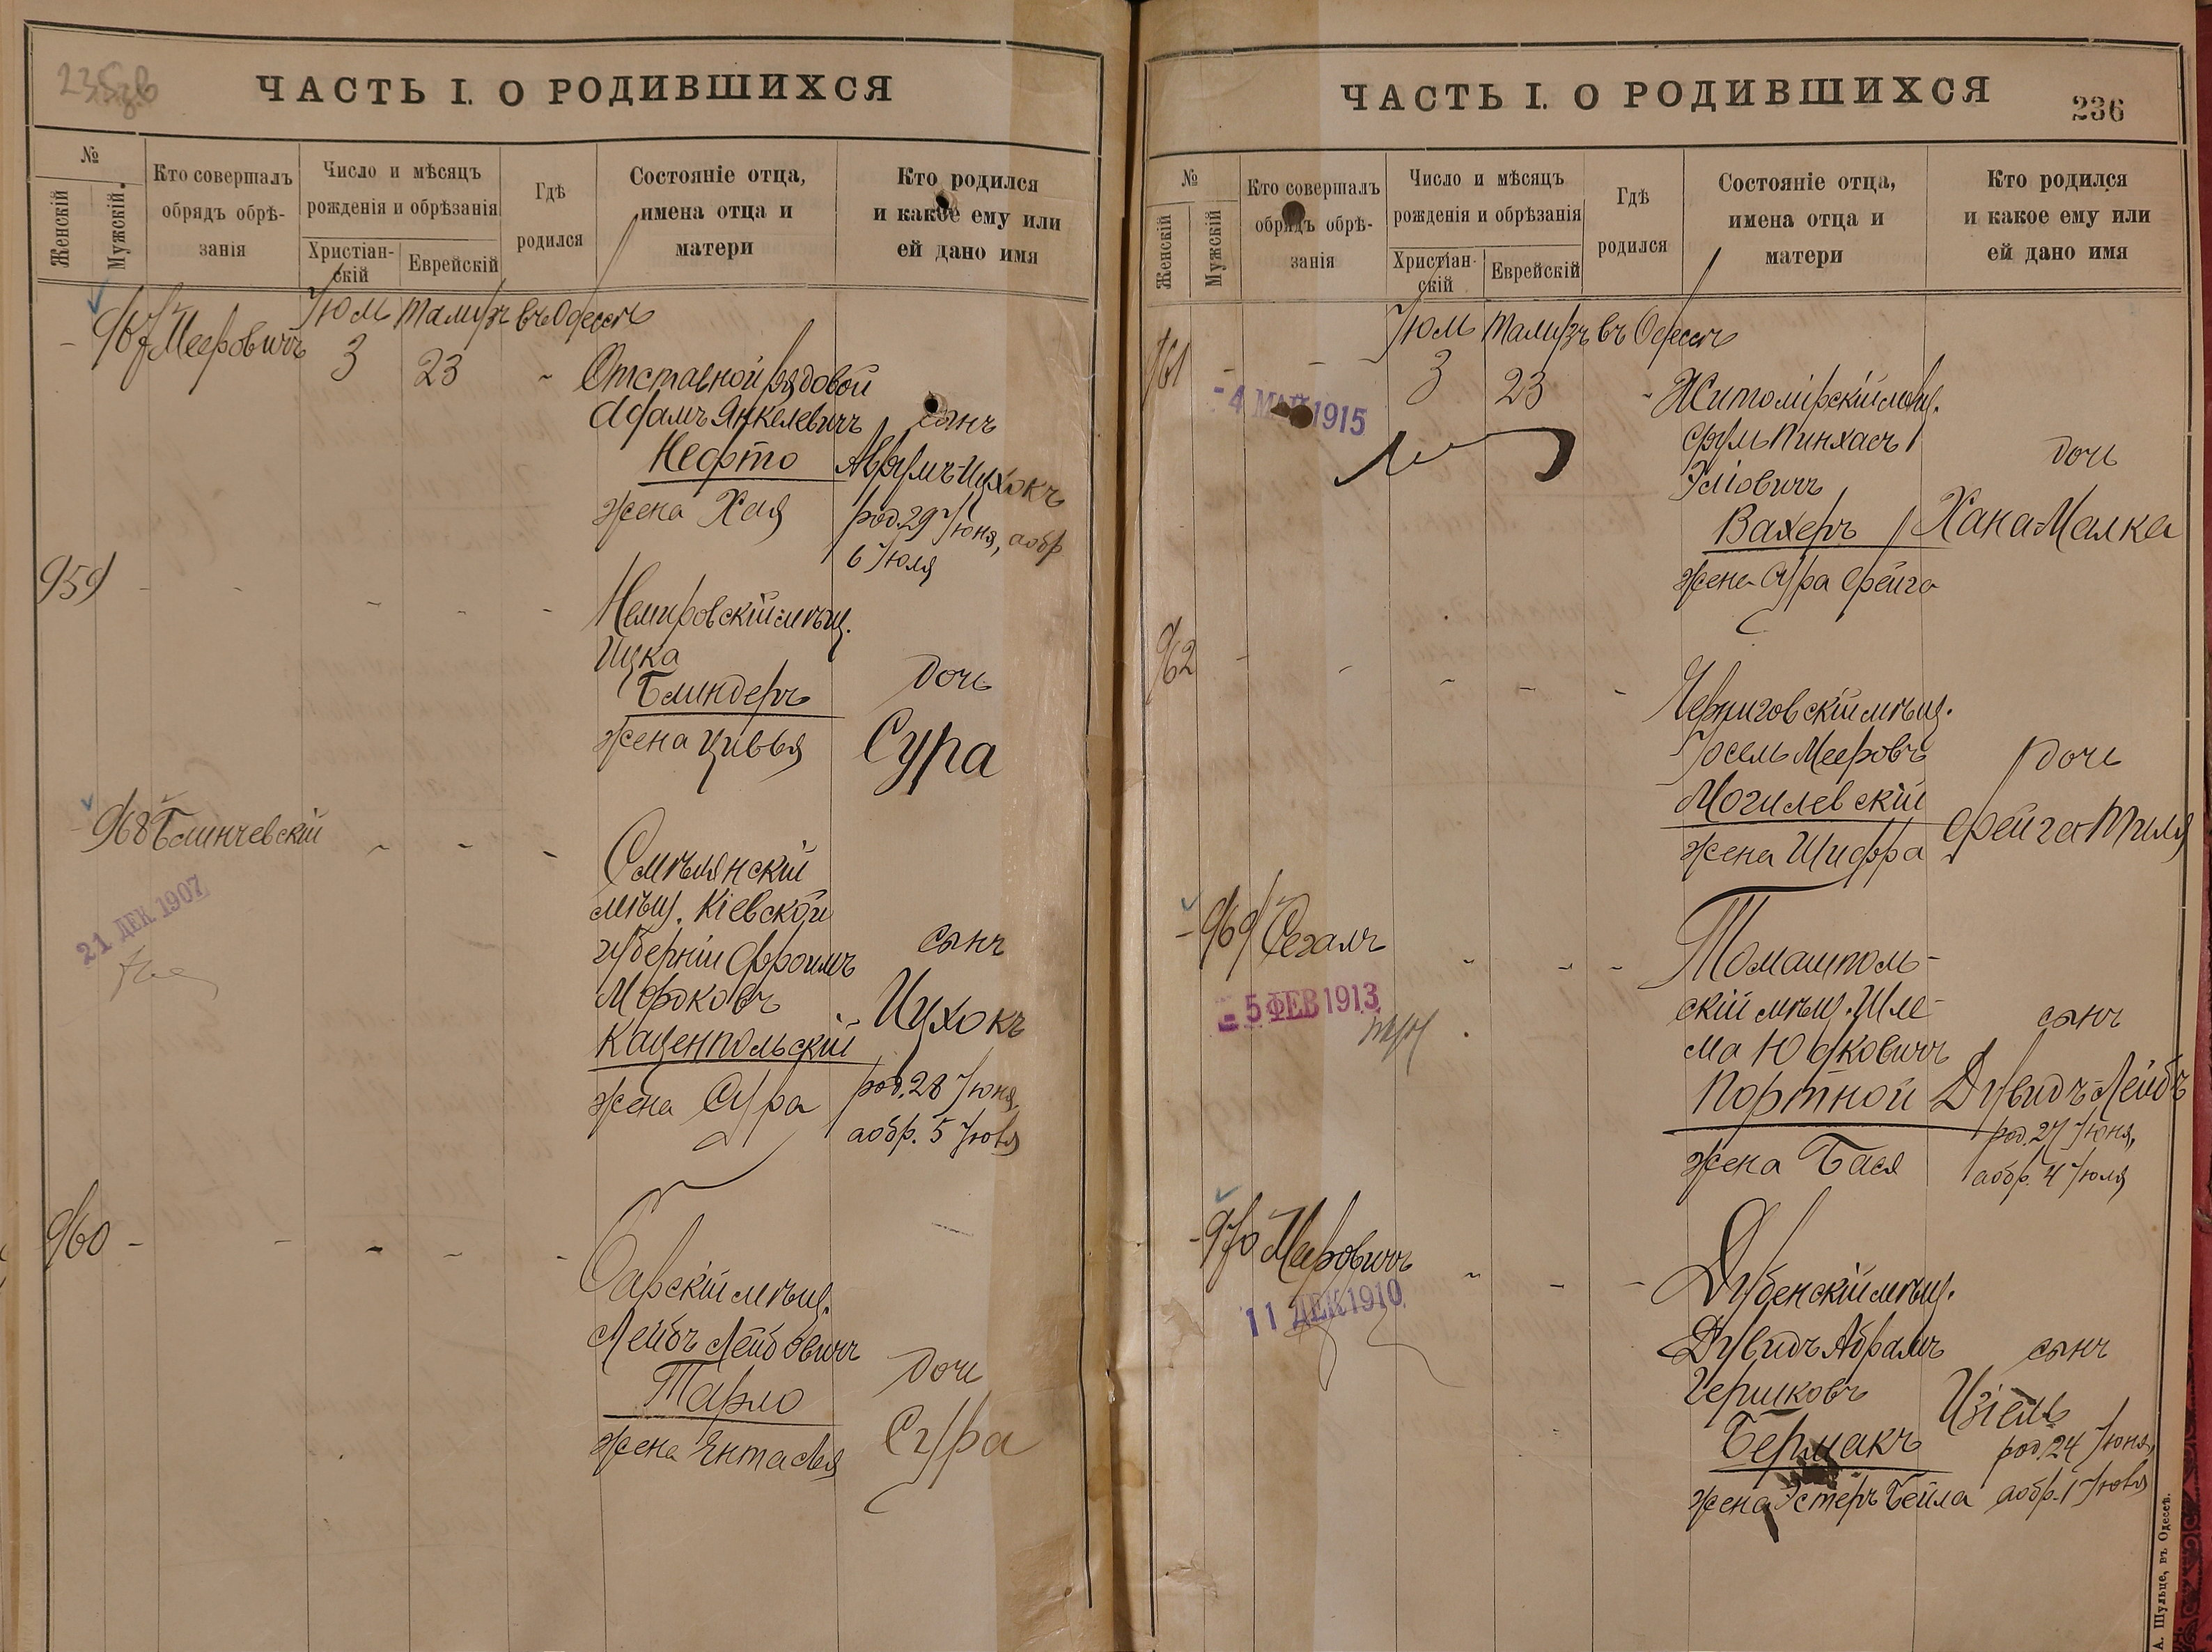 235 зв
ЧАСТЬ I. О РОДИВШИХСЯ
№
Женскій
Мужскій.
Кто совершалъ
обрядъ обрѣ-
занія
Число и мѣсяцъ
рожденія и обрѣзанія
Христіан-
скій
Еврейскій
Гдѣ
родился
Состояніе отца,
имена отца и
матери
Кто родился
и какое ему или
ей дано имя
Іюля Тамузъ въ Одессѣ
967 Мееровичъ 3 23 -
Отставной рядовой
Адамъ Янкелевичъ
Нефто
жена Хая
сынъ
Аврумъ-Ицхокъ
род. 29 Іюня, а обр
6 Іюля
959 - - - - -
Немировскій мѣщ.
Ицка
Блиндеръ
жена Цивья
дочь
Сура
968 Блинчевскій - - -
21 ДЕК 1907
Смѣлянскій
мѣщ. Кіевской
губерніи Фроимъ
Мордковъ
Каценпольскій
жена Сура
сынъ
Ицхокъ
род. 28 Іюня
а обр. 5 Іюля
960 - - - - -
Барскій мѣщ.
Лейбъ Лейбовичъ
Тарло
жена Ента Лея
дочь
Сура
ЧАСТЬ I. О РОДИВШИХСЯ
236
№
Женскій
Мужскій
Кто совершалъ
обрядъ обрѣ-
занія
Число и мѣсяцъ
рожденія и обрѣзанія
Христіан-
скій
Еврейскій
Гдѣ
родился
Состояніе отца,
имена отца и
матери
Кто родился
и какое ему или
ей дано имя
Іюля Тамузъ въ Одессѣ
961 - - 3 23 -
- 4 МАЙ 1915
Житомірскій мѣщ.
Сруль Пинхасъ
Эліовичъ
Вахеръ
жена Сура Фейга
дочь
Хана-Малка
962 - - - - -
Черниговскій мѣщ.
Іосель Мееровъ
Могилевскій
жена Шифра
дочь
Фейга Тиля
969 Сегалъ - - -
= 5 ФЕВ 1913
Томашполь-
скій мѣщ. Шле-
ма Юдковичъ
Портной
жена Бася
сынъ
Дувидъ-Лейбъ
род. 27 Іюня,
а обр. 4 Іюля
970 Мееровичъ - - -
11 ДЕК 1910
Дубенскій мѣщ.
Дувидъ Абрамъ
Гершковъ
Бермакъ
жена Эстеръ Бейла
сынъ
Изіель
род. 24 Іюня,
а обр. 1 Іюля
А. Шульце, въ Одессѣ.